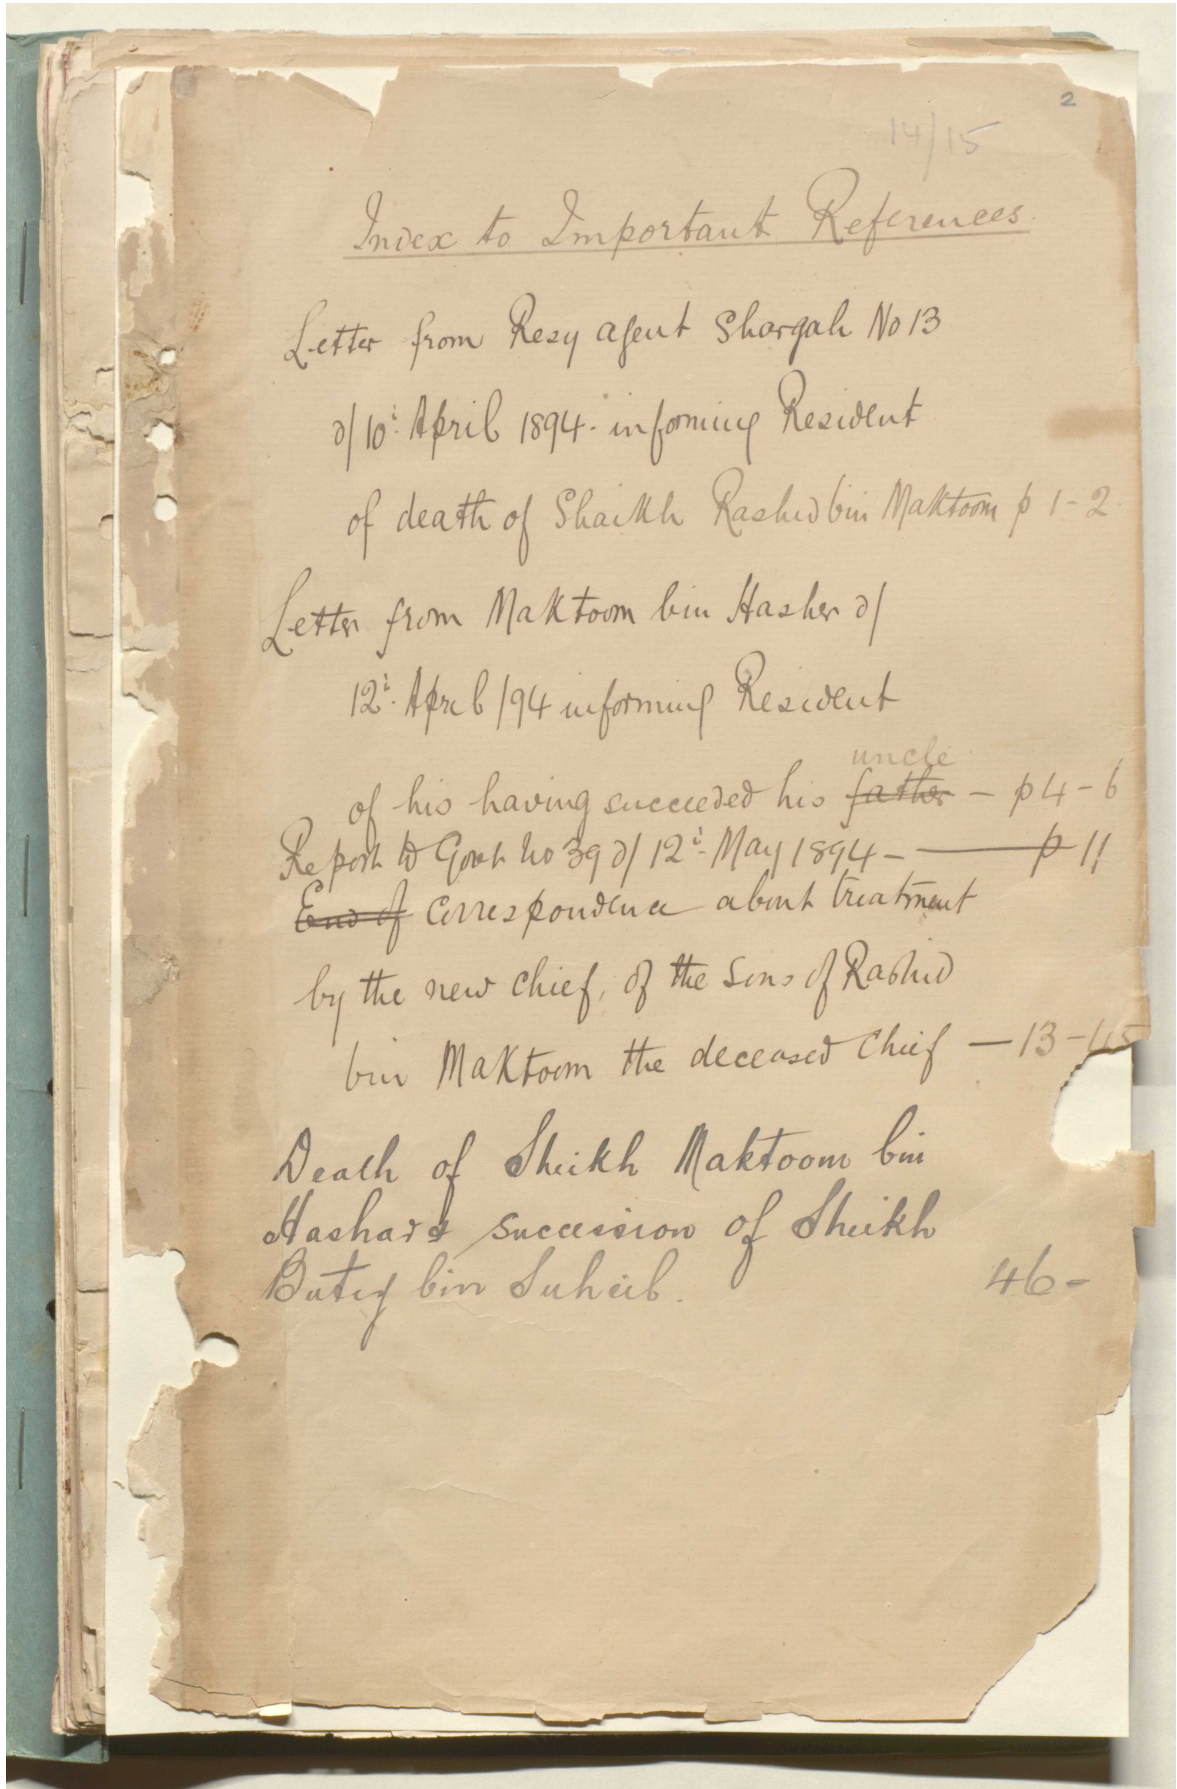 2
14/15
Index to Important References.
Letter from Resy agent Shargah No 13
d/ 10th April 1894 - informing Resident
of death of Shaikh Rashid bin Maktoom p 1-2
Letter from Maktoom bin Hasher d/
12th April /94 informing Resident
uncle
of his having succeeded his father - p 4-6
Report to Govt No 39 d/ 12th May 1894 - p 11
End of correspondence about treatment
by the new chief, of the sons of Rashid
bin Maktoom the deceased Chief - 13-
Death of Sheikh Maktoom bin
Hashar & succession of Sheikh
Butey bin Suheil. 46-